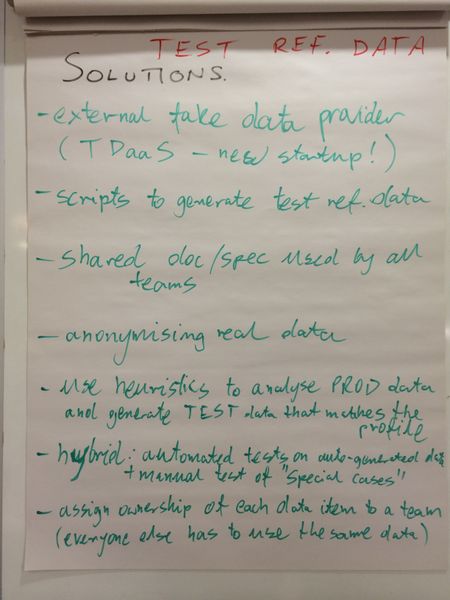 TEST REF. DATA
SOLUTIONS.
- external fake data provider
(TDaaS - new startup!)
- scripts to generate test ref. data
- shared doc/spec used by all
teams
- anonymising real data
- use heuristics to analyse PROD data
and generate TEST data that matches the
profile
- hybrid: automated tests on auto-generated data
+ manual test of "Special cases"
- assign ownership of each data item to a team
(everyone else has to use the same data)